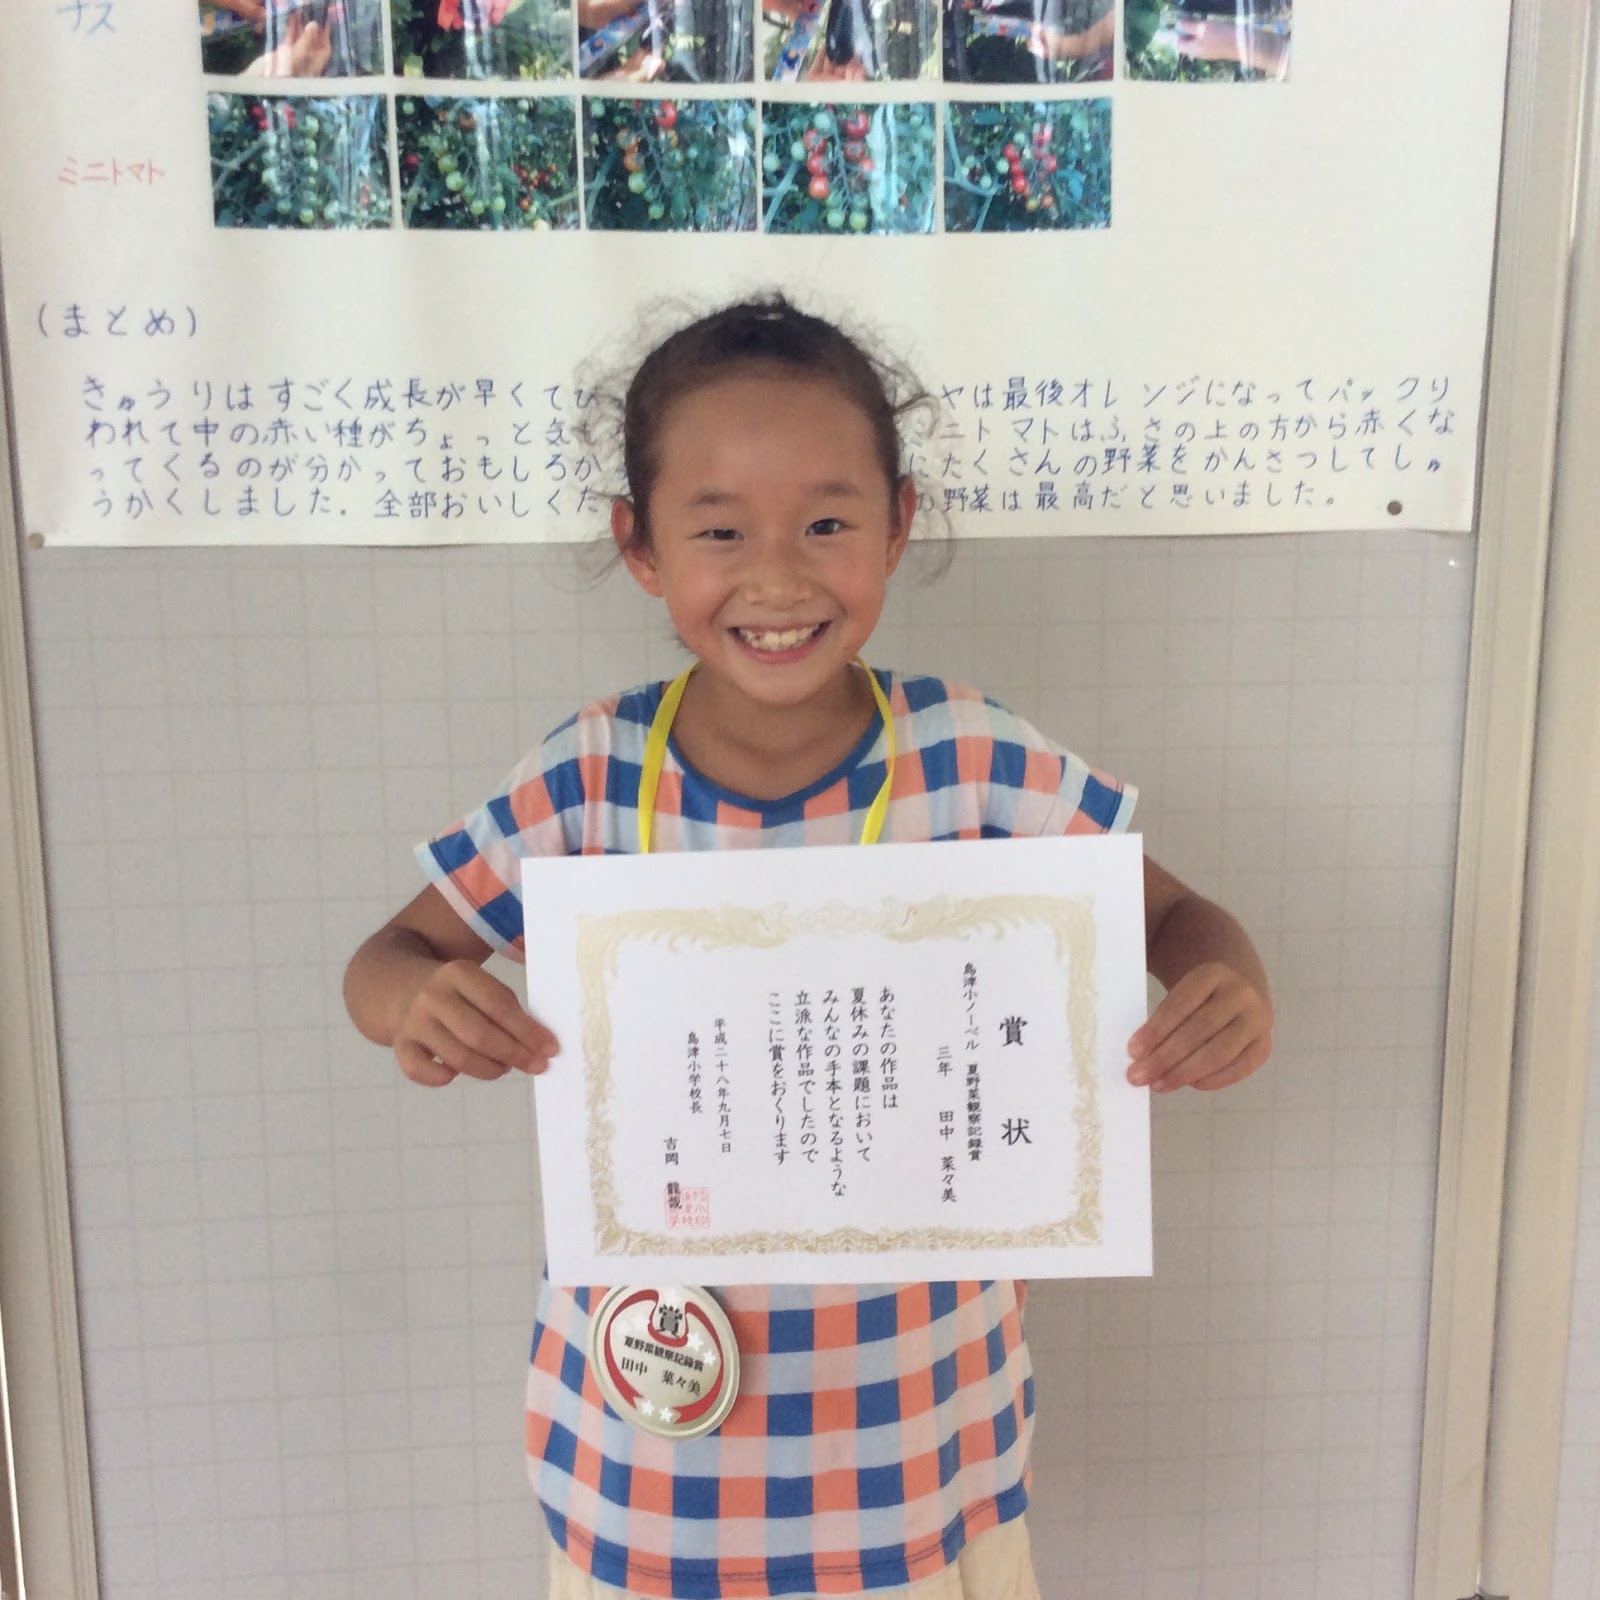 ナス
ミニトマト
(まとめ)
きゅうりはすごく成長が早くてび
わればて中の赤い種がちょっと気
ってくるのが分かっておもしろか
うかくしました.全部おいしくた
ヤは最後オレンジになってパックリ
ニトマトはふさの上の方から赤くな
にたくさんの野菜をかんさつしてしゅ
野菜は最高だと思いました。
賞状
島津小ノーベル 夏野菜観察記録賞
三年 田中 菜々美
あなたの作品は
夏休みの課題において
みんなの手本となるような
立派な作品でしたので
ここに賞をおくります
平成二十八年九月七日
島津小学校長
吉岡 龍哉
賞
夏野菜観察記録賞
田中 菜々美